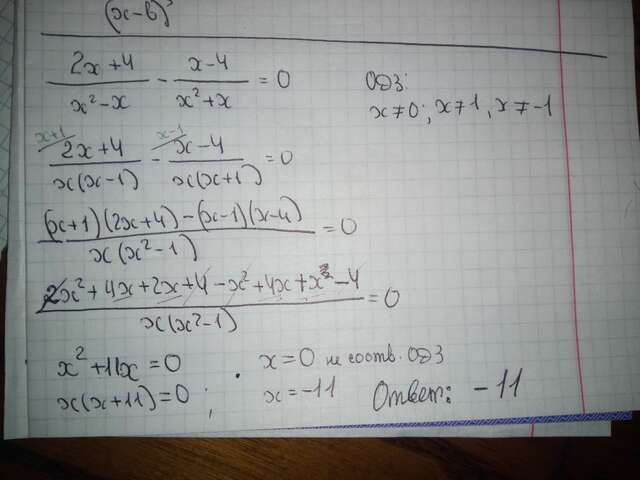 (x-b)²
(2x+4)/(x²-x) - (x-4)/(x²+x) = 0 ОДЗ: x≠0; x≠1, x≠-1
x+1 (2x+4)/(x(x-1)) - x-1 (x-4)/(x(x+1)) = 0
((x+1)(2x+4)-(x-1)(x-4))/(x(x²-1)) = 0
(2x²+4x+2x+4-x²+4x+x-4)/(x(x²-1)) = 0
x²+11x=0 x=0 не соотв. ОДЗ
x(x+11)=0; x=-11 Ответ: -11